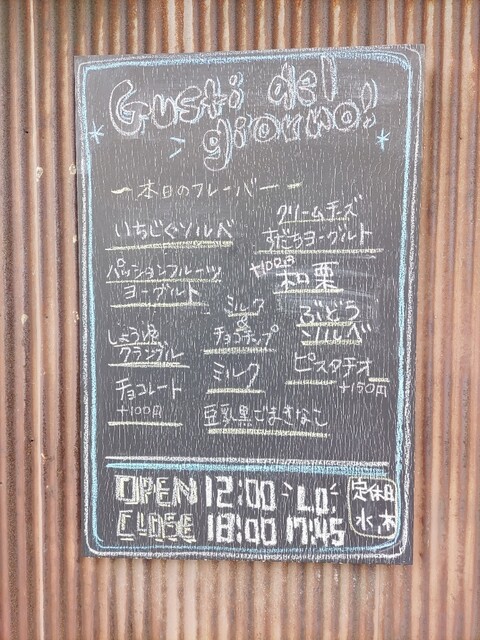 Gusti del
giorno!
本日のフレーバー
いちじくソルベ
クリームチーズ
すだちヨーグルト
パッションフルーツ
ヨーグルト
+100円
和栗
ミルク
&
チョコチップ
ぶどう
ソルベ
しょう油
クランブル
ミルク
ピスタチオ
+150円
チョコレート
+100円
豆乳黒ごまきなこ
OPEN 12:00 LO
CLOSE 18:00 17:45
定休日
水、木